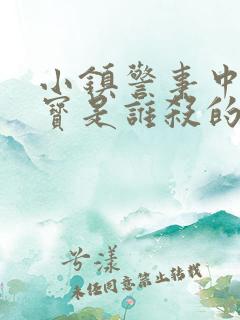 小鎮警事中
寶是誰殺的
兮漾
未经同意禁止转载